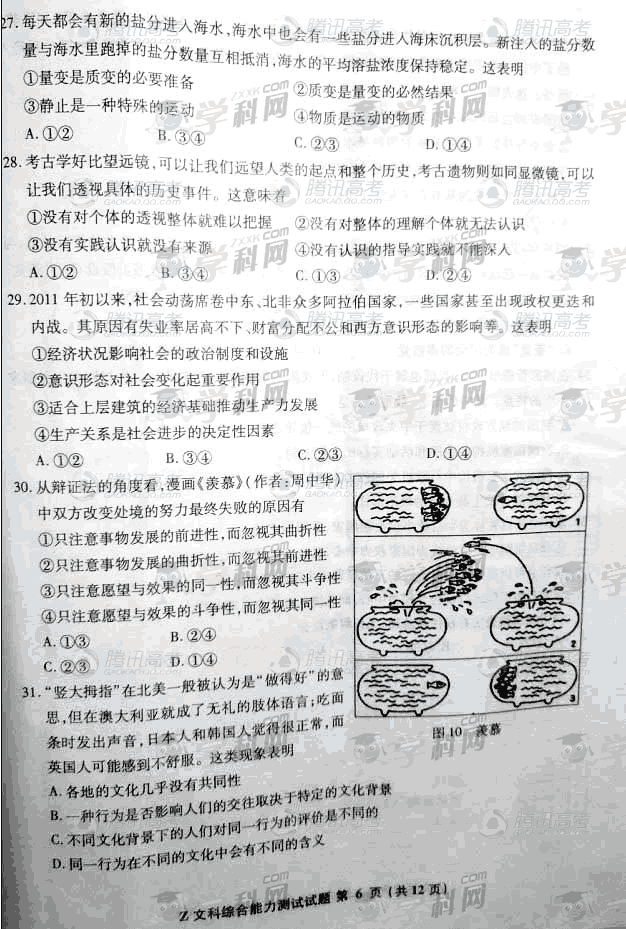 27.每天都会有新的盐分进入海水,海水中也会有一些盐分进入海床沉积层。新注入的盐分数
量与海水里跑掉的盐分数量互相抵消,海水的平均溶盐浓度保持稳定。这表明
①量变是质变的必要准备 ②质变是量变的必然结果
③静止是一种特殊的运动 ④物质是运动的物质
A.①② B.③④ C.②③ D.①④
28.考古学好比望远镜,可以让我们远望人类的起点和整个历史,考古遗物则如同显微镜,可以
让我们透视具体的历史事件。这意味着
①没有对个体的透视整体就难以把握 ②没有对整体的理解个体就无法认识
③没有实践认识就没有来源 ④没有认识的指导实践就不能深入
A.①② B.③④ C.①③ D.②④
29.2011 年初以来,社会动荡席卷中东、北非众多阿拉伯国家,一些国家甚至出现政权更迭和
内战。其原因有失业率居高不下、财富分配不公和西方意识形态的影响等。这表明
①经济状况影响社会的政治制度和设施
②意识形态对社会变化起重要作用
③适合上层建筑的经济基础推动生产力发展
④生产关系是社会进步的决定性因素
A.①② B.③④ C.②③ D.①④
30.从辩证法的角度看,漫画《羡慕》(作者:周中华)
中双方改变处境的努力最终失败的原因有
①只注意事物发展的前进性,而忽视其曲折性
②只注意事物发展的曲折性,而忽视其前进性
③只注意愿望与效果的同一性,而忽视其斗争性
④只注意愿望与效果的斗争性,而忽视其同一性
A.①③ B.②④
C.②③ D.①④
1
2
3
图10 羡慕
31.“竖大拇指”在北美一般被认为是“做得好”的意
思,但在澳大利亚就成了无礼的肢体语言;吃面
条时发出声音,日本人和韩国人觉得很正常,而
英国人可能感到不舒服。这类现象表明
A.各地的文化几乎没有共同性
B.一种行为是否影响人们的交往取决于特定的文化背景
C.不同文化背景下的人们对同一行为的评价是不同的
D.同一行为在不同的文化中会有不同的含义
Z文科综合能力测试试题 第 6 页(共12页)